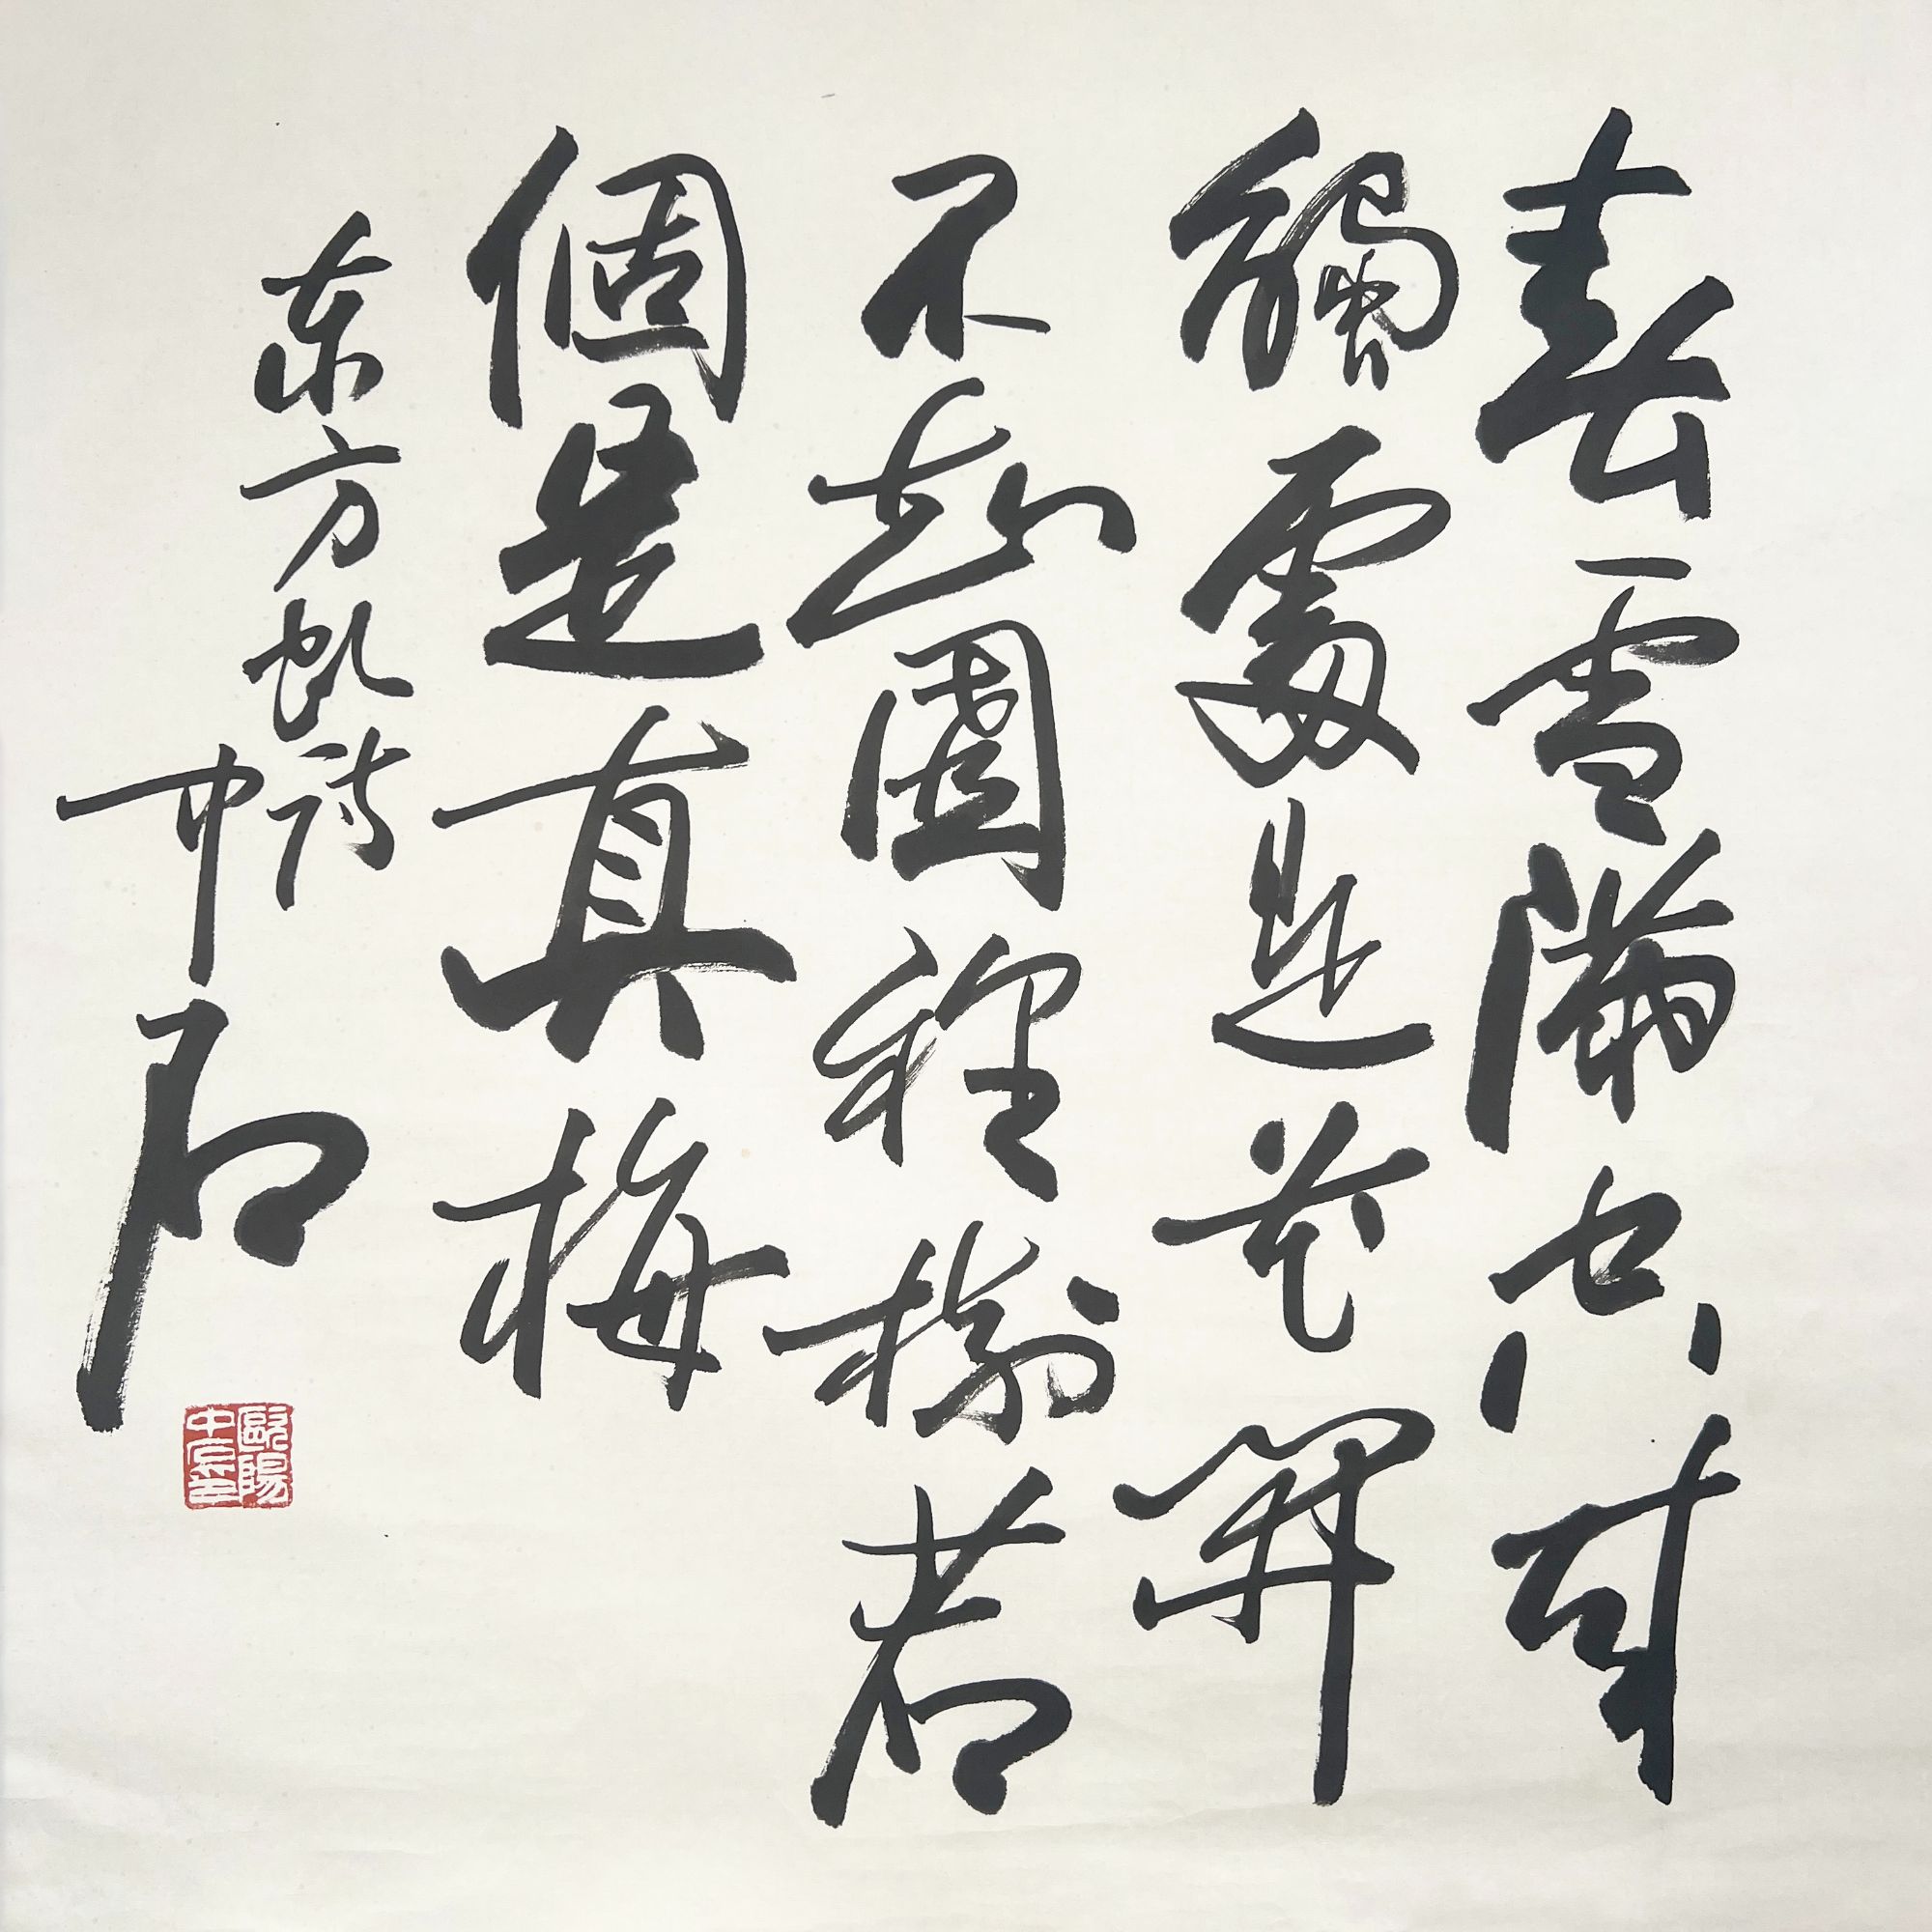 春雪滿空來
觸處是花開
不知園裡樹若
個是真梅
东方虬詩
中石
歐陽
中石印